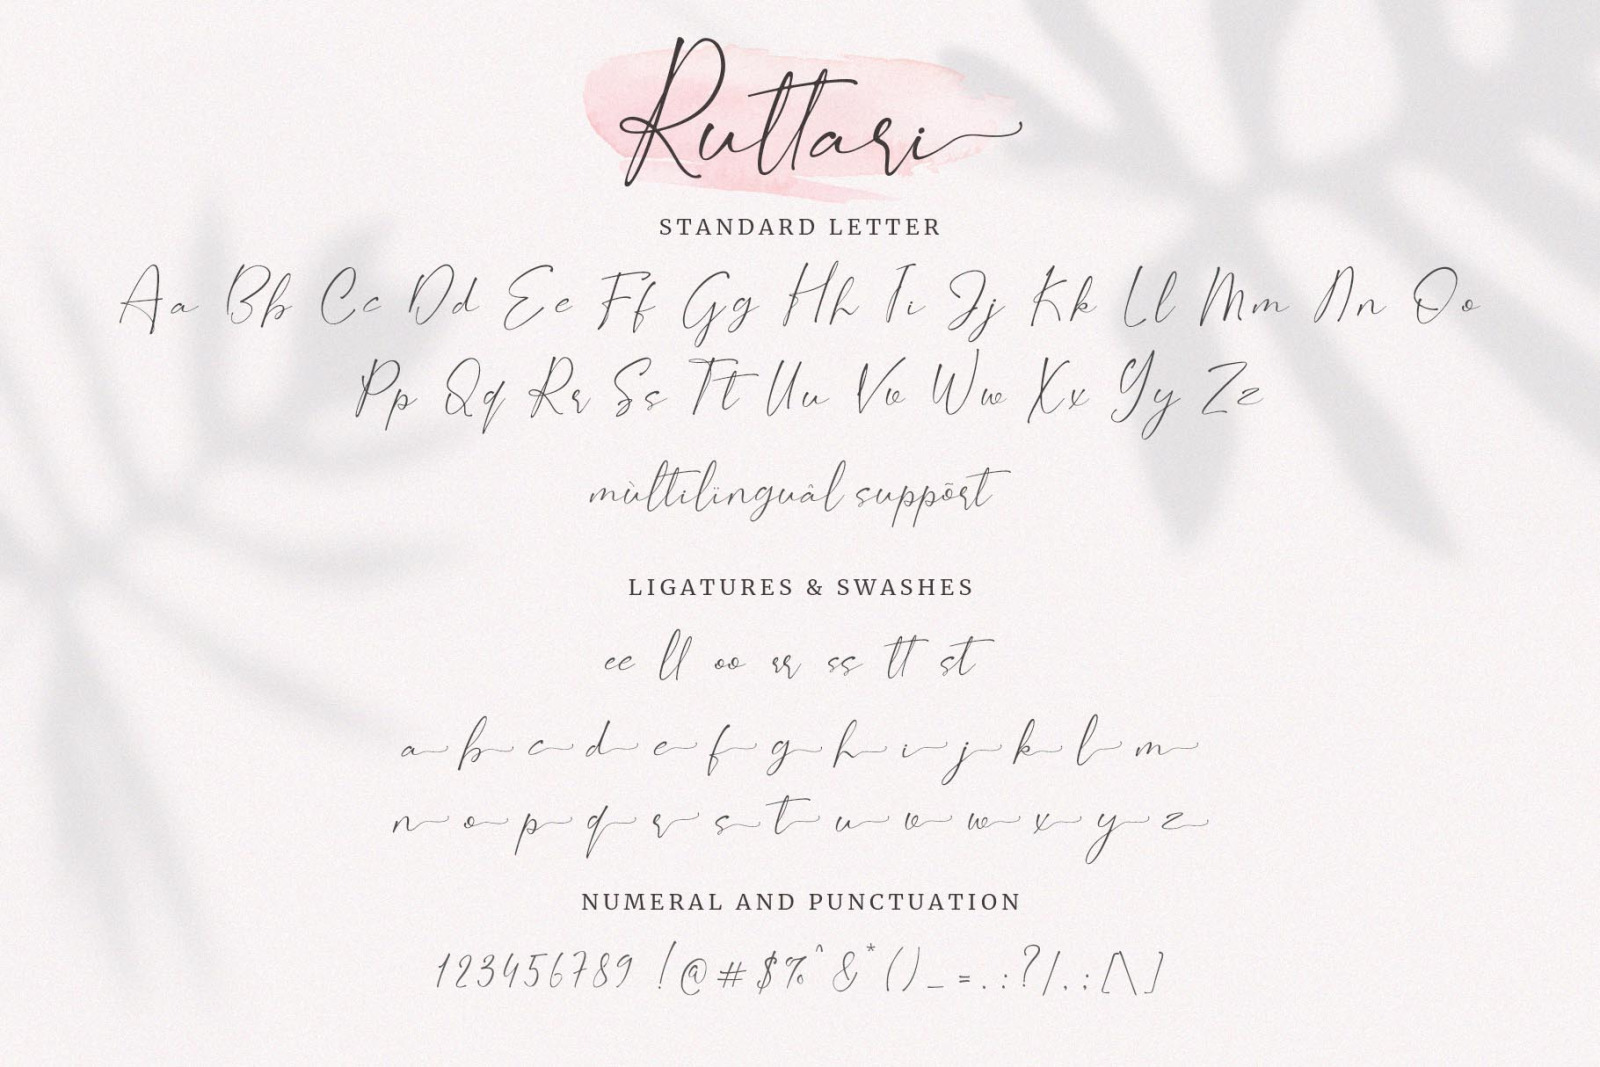 Ruttari
STANDARD LETTER
Aa Bb Cc Dd Ee Ff Gg Hh Ii Jj Kk Ll Mm Nn Oo
Pp Qq Rr Ss Tt Uu Vv Ww Xx Yy Zz
mùltilïnguâl suppõrt
LIGATURES & SWASHES
ee ll oo rr ss tt st
a b c d e f g h i j k l m
n o p q r s t u v w x y z
NUMERAL AND PUNCTUATION
123456789 !@#$%^&*()_=.:?/,;[\]